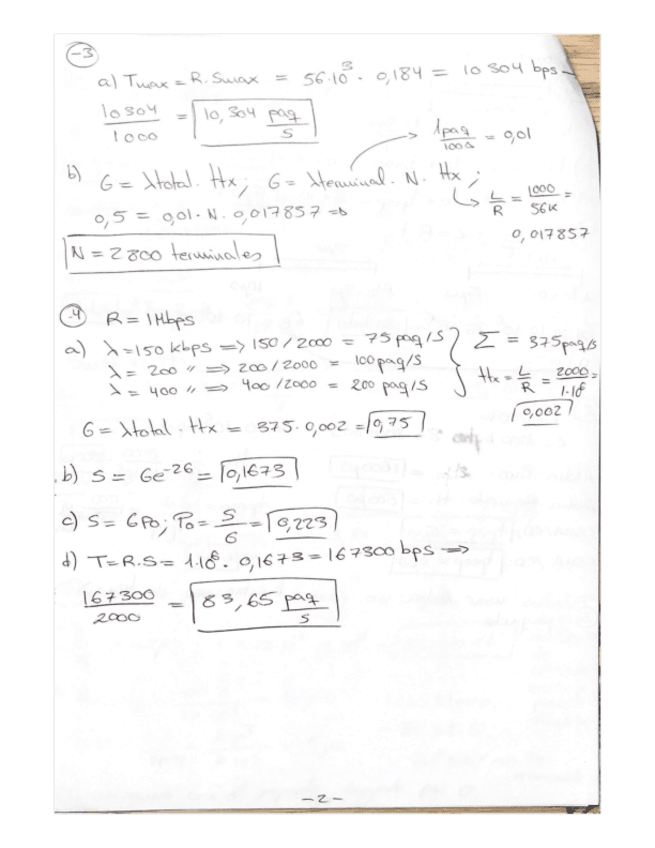 -3
a) Tmax = R. Smax = 56·10³ · 0,184 = 10 304 bps
10304/1000 = 10,304 paq/S
1paq/100s = 0,01
b) G = λtotal. Ttx; G = λterminal. N. Ttx;
L/R = 1000/56K = 0,017857
0,5 = 0,01 · N. 0,017857 =>
N = 2800 terminales
-4 R = 1Mbps
a) λ=150 kbps => 150/2000 = 75 paq/S
λ = 200 " => 200/2000 = 100 paq/S
λ = 400 " => 400/2000 = 200 paq/S
Σ = 375 paq/s
Ttx = L/R = 2000/1·10⁶ = 0,002
G = λtotal · Ttx = 375·0,002 = 0,75
b) S = Ge^-2G = 0,1673
c) S = GPo; Po = S/G = 0,223
d) T=R.S = 1·10⁶. 0,1673 = 167300 bps =>
167300/2000 = 83,65 paq/s
-2-